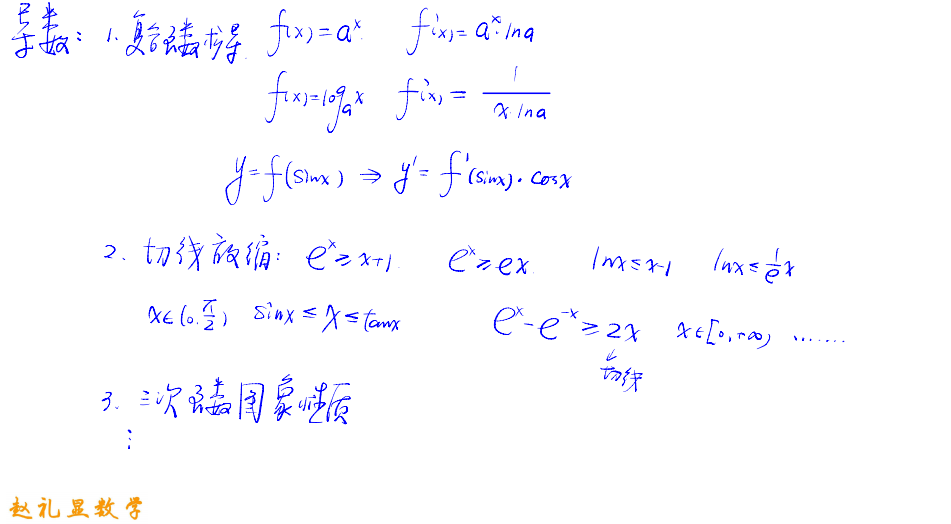 导数: 1. 复合函数求导 f(x)=aˣ f'(x)=aˣ·lna
f(x)=logₐx f'(x)=1/(x·lna)
y=f(sinx) ⇒ y'=f'(sinx)·cosx
2. 切线放缩: eˣ≥x+1 eˣ≥ex lnx≤x-1 lnx≤(1/e)x
x∈(0,π/2) sinx≤x≤tanx eˣ-e⁻ˣ≥2x x∈[0,+∞) ……
切线
3. 三次函数图象性质
⋮
赵礼显数学